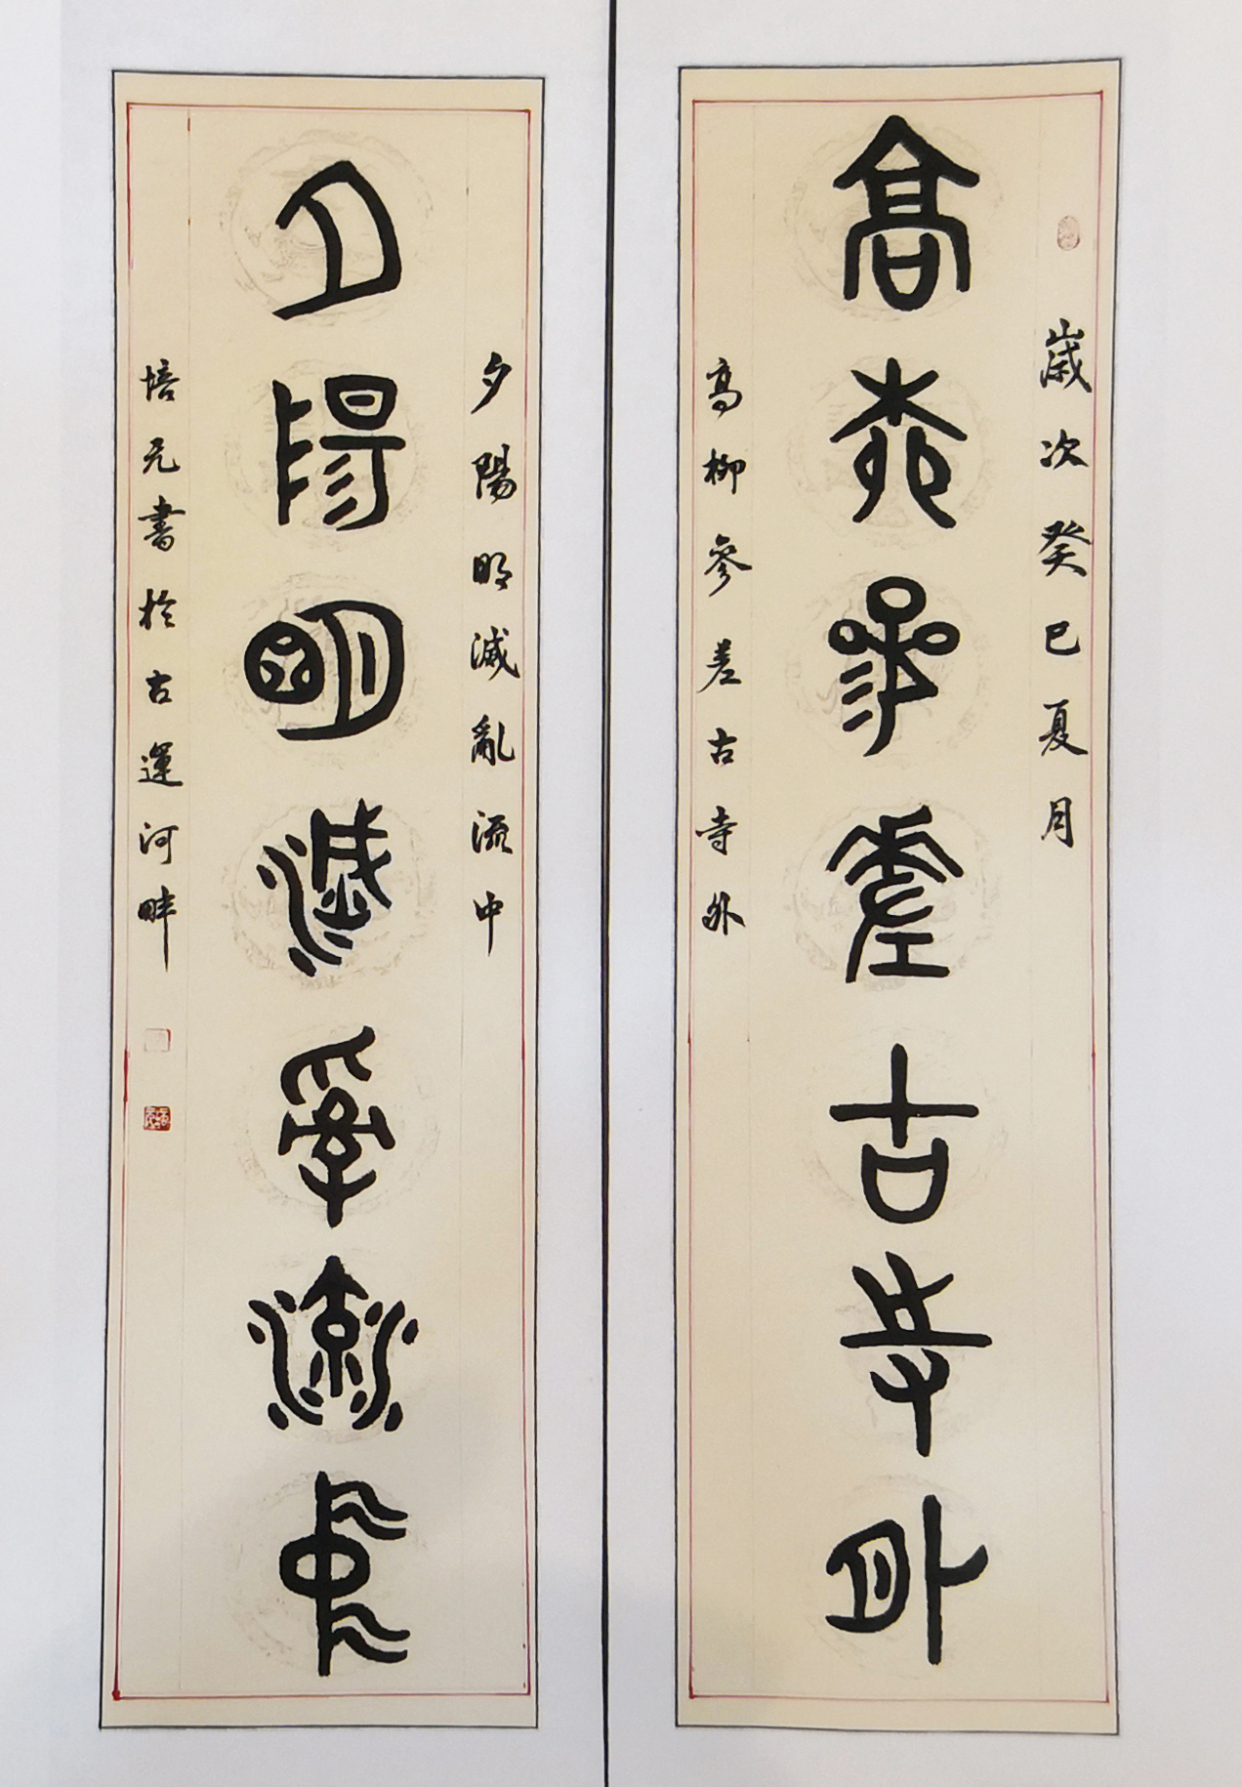 歲次癸巳夏月
高柳參差古寺外
高柳參差古寺外
夕陽明滅亂流中
夕陽明滅亂流中
培元書於古運河畔